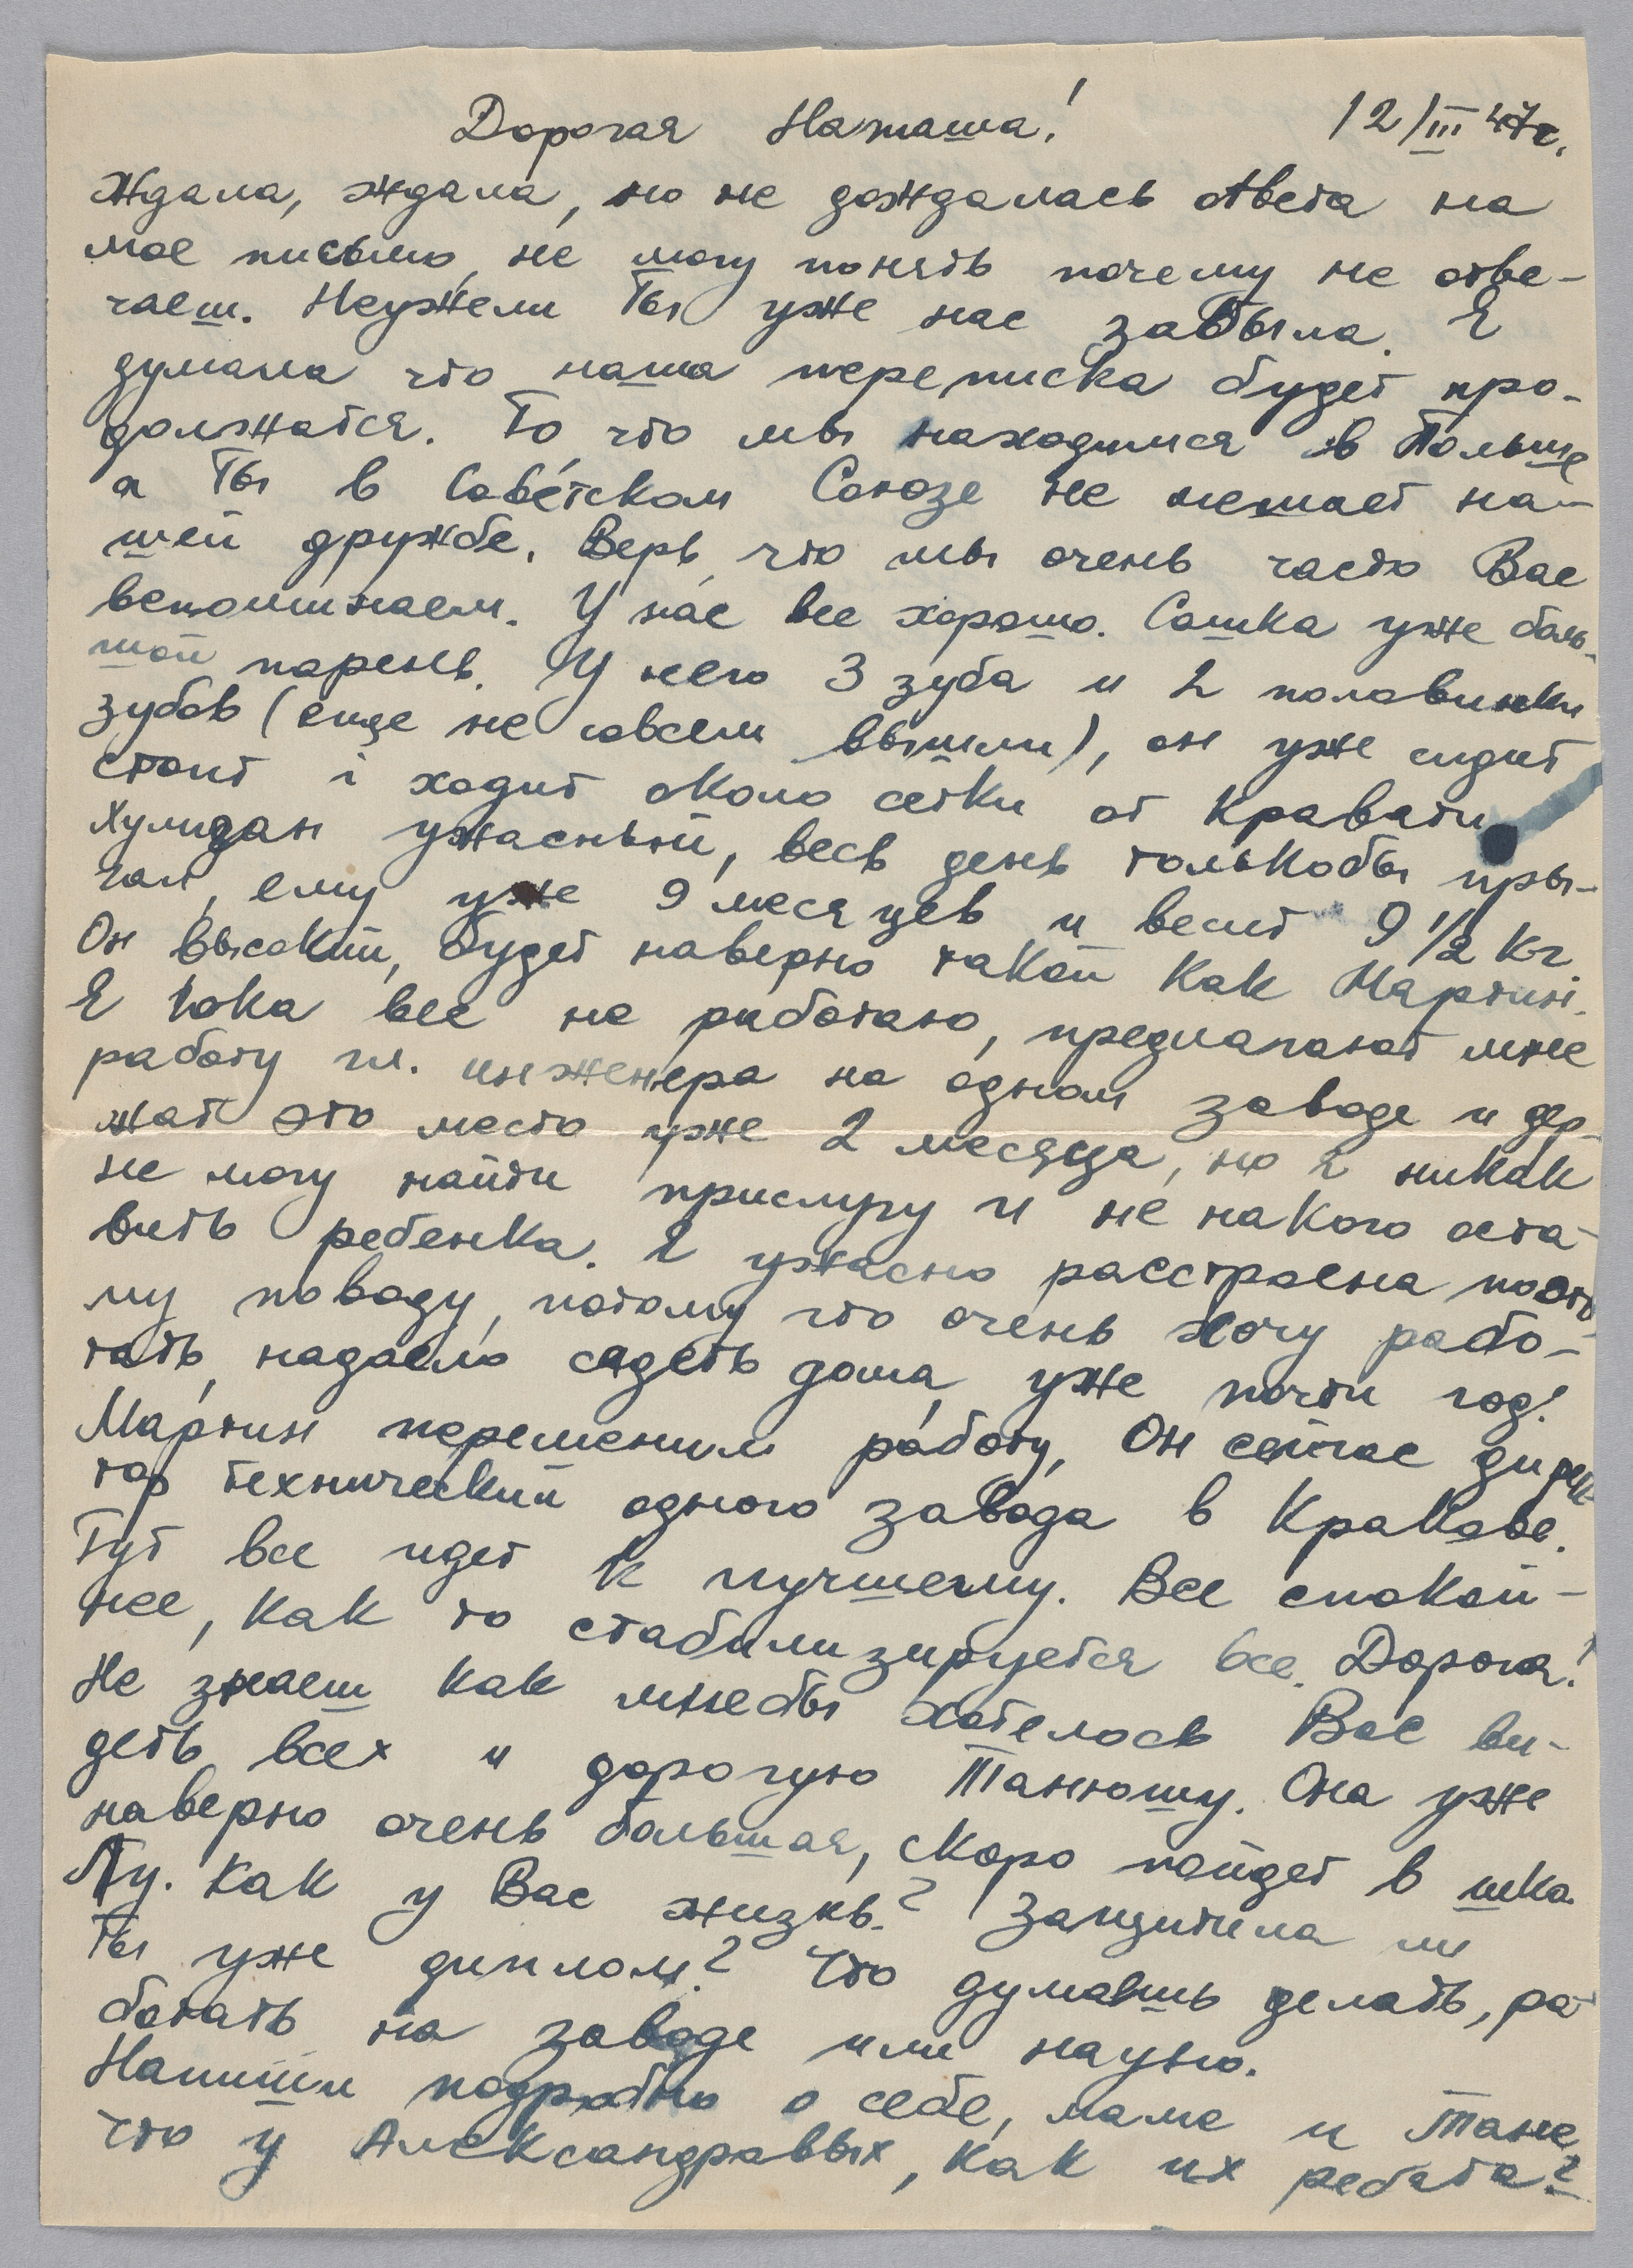 Дорогая Наташа! 12/III 47г.
Ждала, ждала, но не дождалась ответа на
мое письмо, не могу понять почему не отве-
чаеш. Неужели Ты уже нас забыла. Я
думала что наша переписка будет про-
должатся. То, что мы находимся в Польше
а Ты в Советском Союзе не мешает на-
шей дружбе. Верь, что мы очень часто Вас
вспоминаем. У нас все хорошо. Сашка уже боль-
шой парень. У него 3 зуба и 2 половинки
зубов (еще не совсем вышли), он уже сидит
стоит і ходит около сетки от кравати
Хулиган ужасный, весь день толькобы пры-
гал, ему уже 9 месяцев и весит 9 1/2 кг.
Он высокий, будет наверно такой как Мартин.
Я пока все не работаю, предлагают мне
работу гл. инженера на одном заводе и дер-
жат это место уже 2 месяца, но я никак
не могу найти прислугу и не накого оста-
вить ребенка. Я ужасно расстроена поэто-
му поводу, потому что очень хочу рабо-
тать, надоело сидеть дома, уже почти год!
Мартин переменил работу, Он сейчас дирек-
тор технический одного завода в Кракове.
Тут все идет к лучшему. Все спокой-
нее, как то стабилизируется все. Дорогая!
Не знаеш как мнебы хотелось Вас ви-
деть всех и дорогую Танюшу. Она уже
наверно очень большая, скоро пойдет в шко-
лу. Как у Вас жизнь? Защитила ли
Ты уже диплом? Что думаешь делать, ра-
ботать на заводе или научно.
Напиши подробно о себе, маме и Тане.
Что у Александровых, как их ребята?